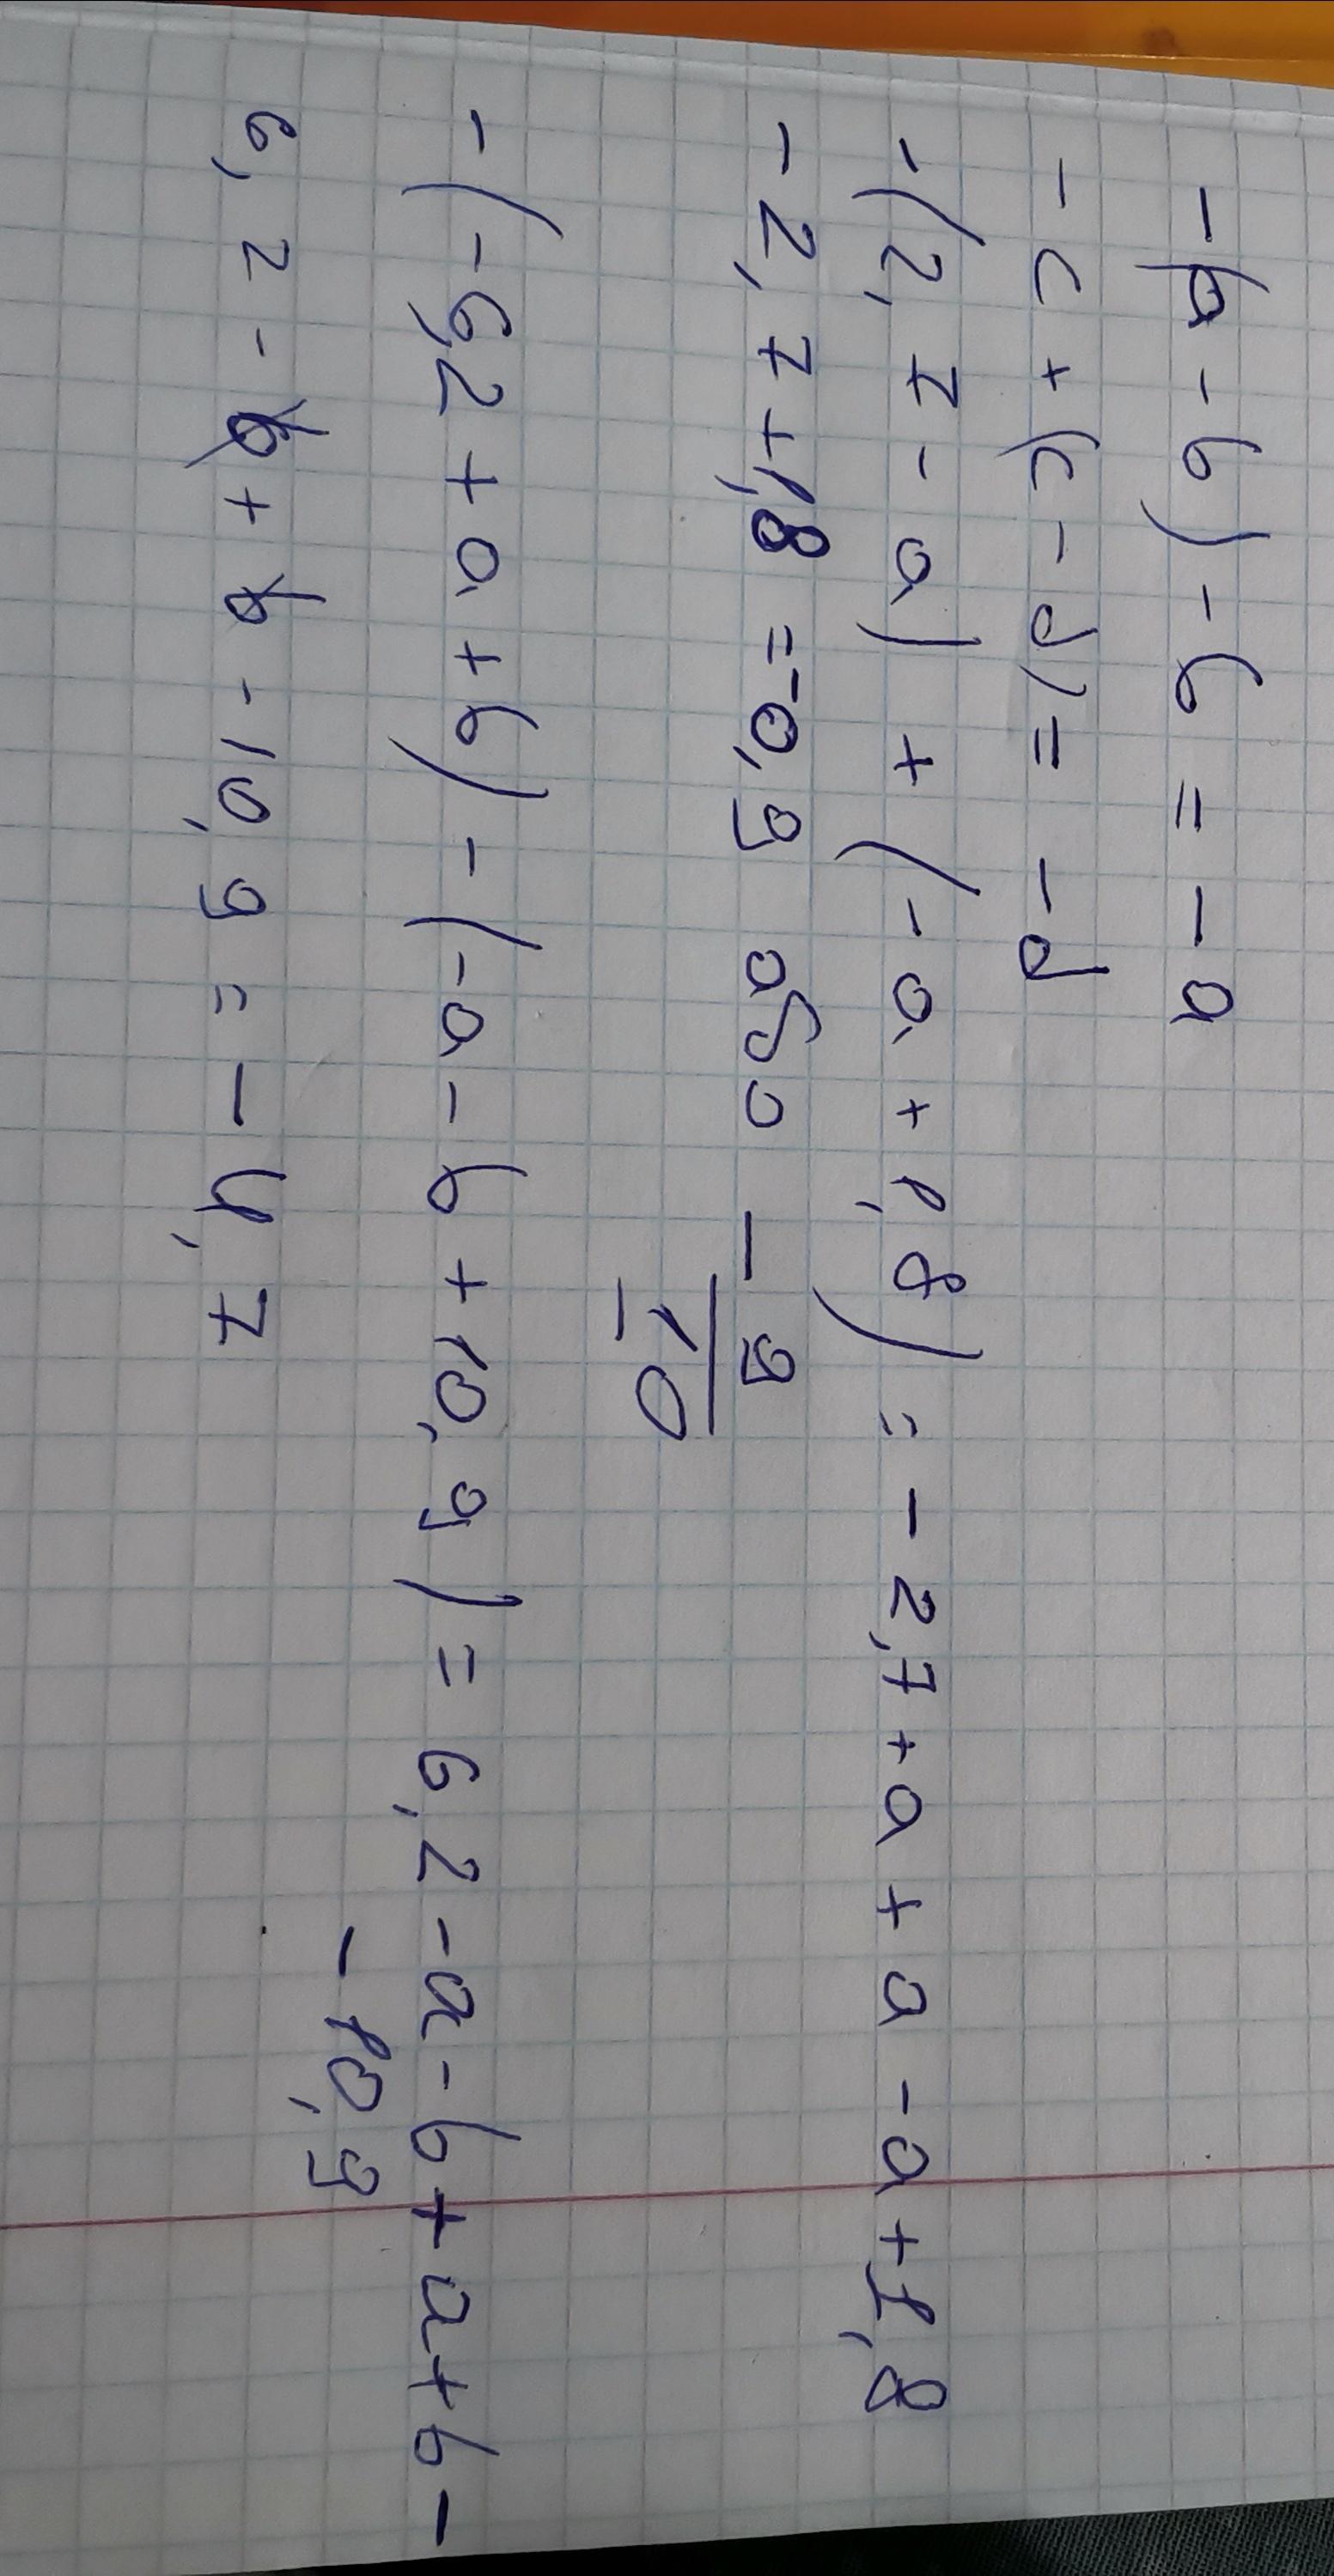 -(a - b) - b = - a
- c + (c - d) = - d
-(2,7 - a) + (- a + 1,8) = - 2,7 + a + a - a + 1,8
- 2,7 + 1,8 = -0,9 або - 9/10
- (-6,2 + a + b) - (-a - b + 10,9) = 6,2 - a - b + a + b -
- 10,9
6, 2 - b + b - 10,9 = - 4,7